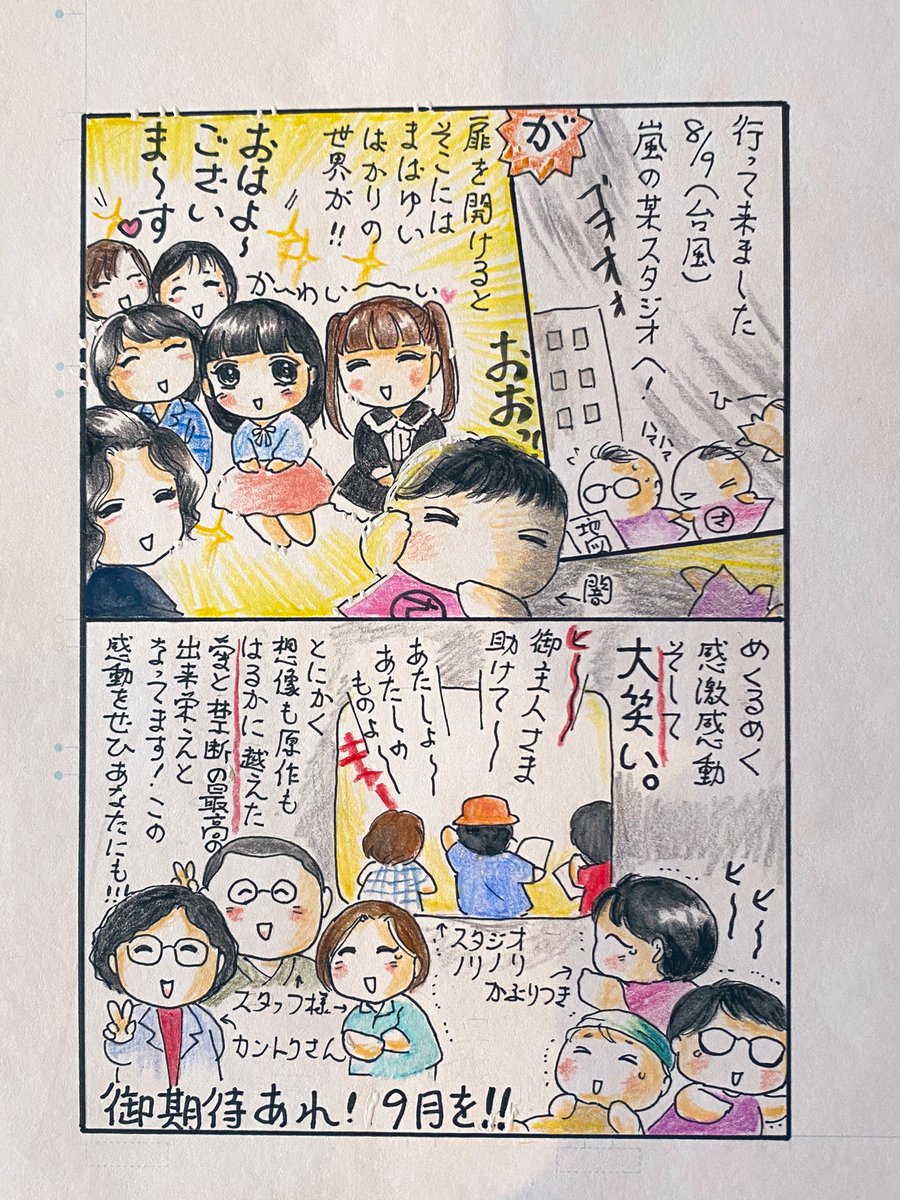 行って来ました
8/9(台風)
嵐の某スタジオへ!
ゴオオオ
ひー
ハァハァ
地図
さ
が
扉を開けると
そこには
まばゆい
ばかりの
世界が!!
おはよ〜
ござい
ま〜す
か〜わい〜〜い
おおっ
さ
闇
めくるめく
感激感動
そして
大笑い。
ヒ〜〜
御主人さま
助けて〜〜
あたしよ〜
あたしの
ものよ〜
キャー
とにかく
想像も原作も
はるかに越えた
愛と禁断の最高の
出来栄えと
なってます!この
感動をぜひあなたにも!!!
スタジオ
ノリノリ
かぶりつき
ヒ〜〜
ヒ〜〜
スタッフ様
カントクさん
御期待あれ!9月を!!